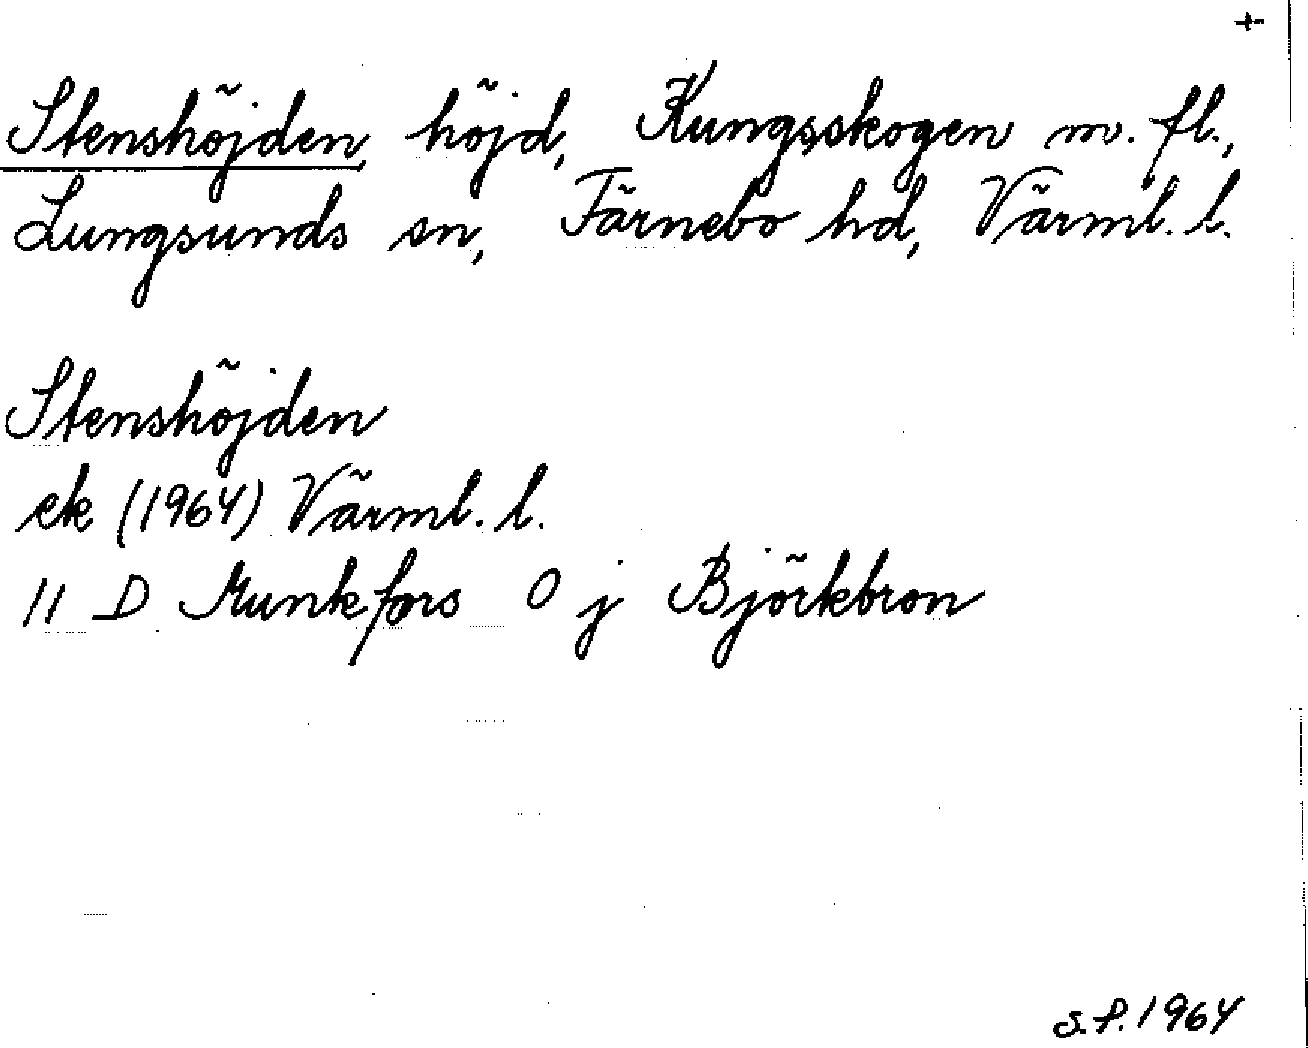 +
Stenshöjden, höjd, Kungsskogen m. fl.,
Lungsunds sn, Färnebo hd, Värml. l.
Stenshöjden
ek (1964) Värml. l.
11 D Munkfors 0 j Björkbron
S.P. 1964